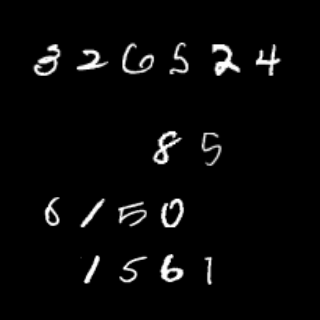 326524
85
6150
1561